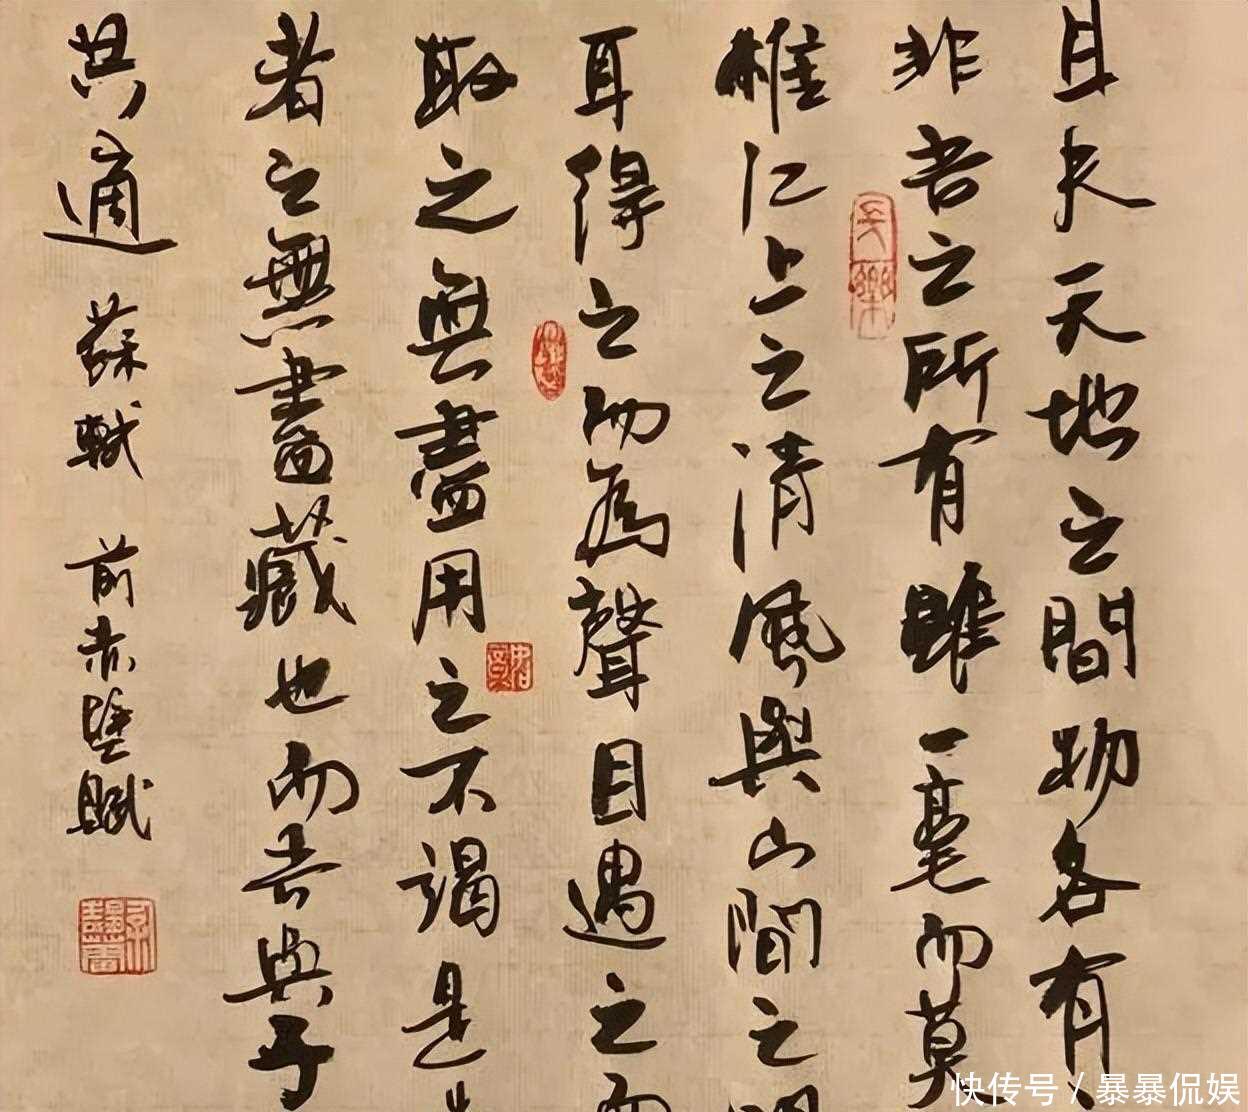 且夫天地之間物各有
非吾之所有雖一毫而莫
惟江上之清風與山間之
耳得之而為聲目遇之而
取之無盡用之不竭是
者之無盡藏也而吾與子
共適 蘇軾 前赤壁賦
快传号 / 暴暴侃娱